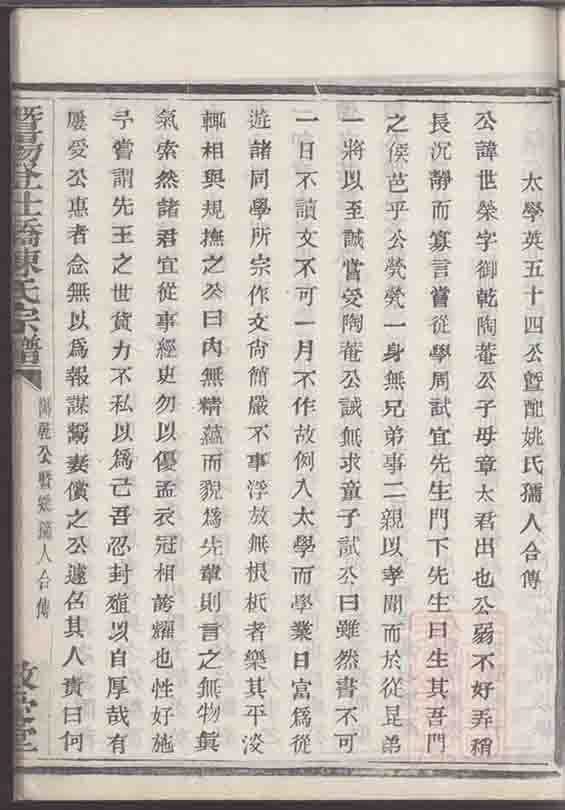 太學英五十四公曁配姚氏孺人合傳
公諱世榮字御乾陶菴公子母章太君出也公弱不好弄稍
長沉靜而寡言嘗從學周試宜先生門下先生曰生其吾門
之侯芭乎公煢煢一身無兄弟事二親以孝聞而於從昆弟
一將以至誠嘗受陶菴公誡無求童子試公曰雖然書不可
一日不讀文不可一月不作故例入太學而學業日富爲從
遊諸同學所宗作文尙簡嚴不事浮放無根柢者樂其平淡
輙相與規撫之公曰內無精蘊而貌爲先輩則言之無物眞
氣索然諸君宜從事經史勿以優孟衣冠相誇耀也性好施
予嘗謂先王之世貨力不私以爲己吾忍封殖以自厚哉有
屢受公惠者念無以爲報謀鬻妻償之公遽召其人責曰何
暨陽登仕橋陳氏宗譜
御乾公曁姚孺人合傳